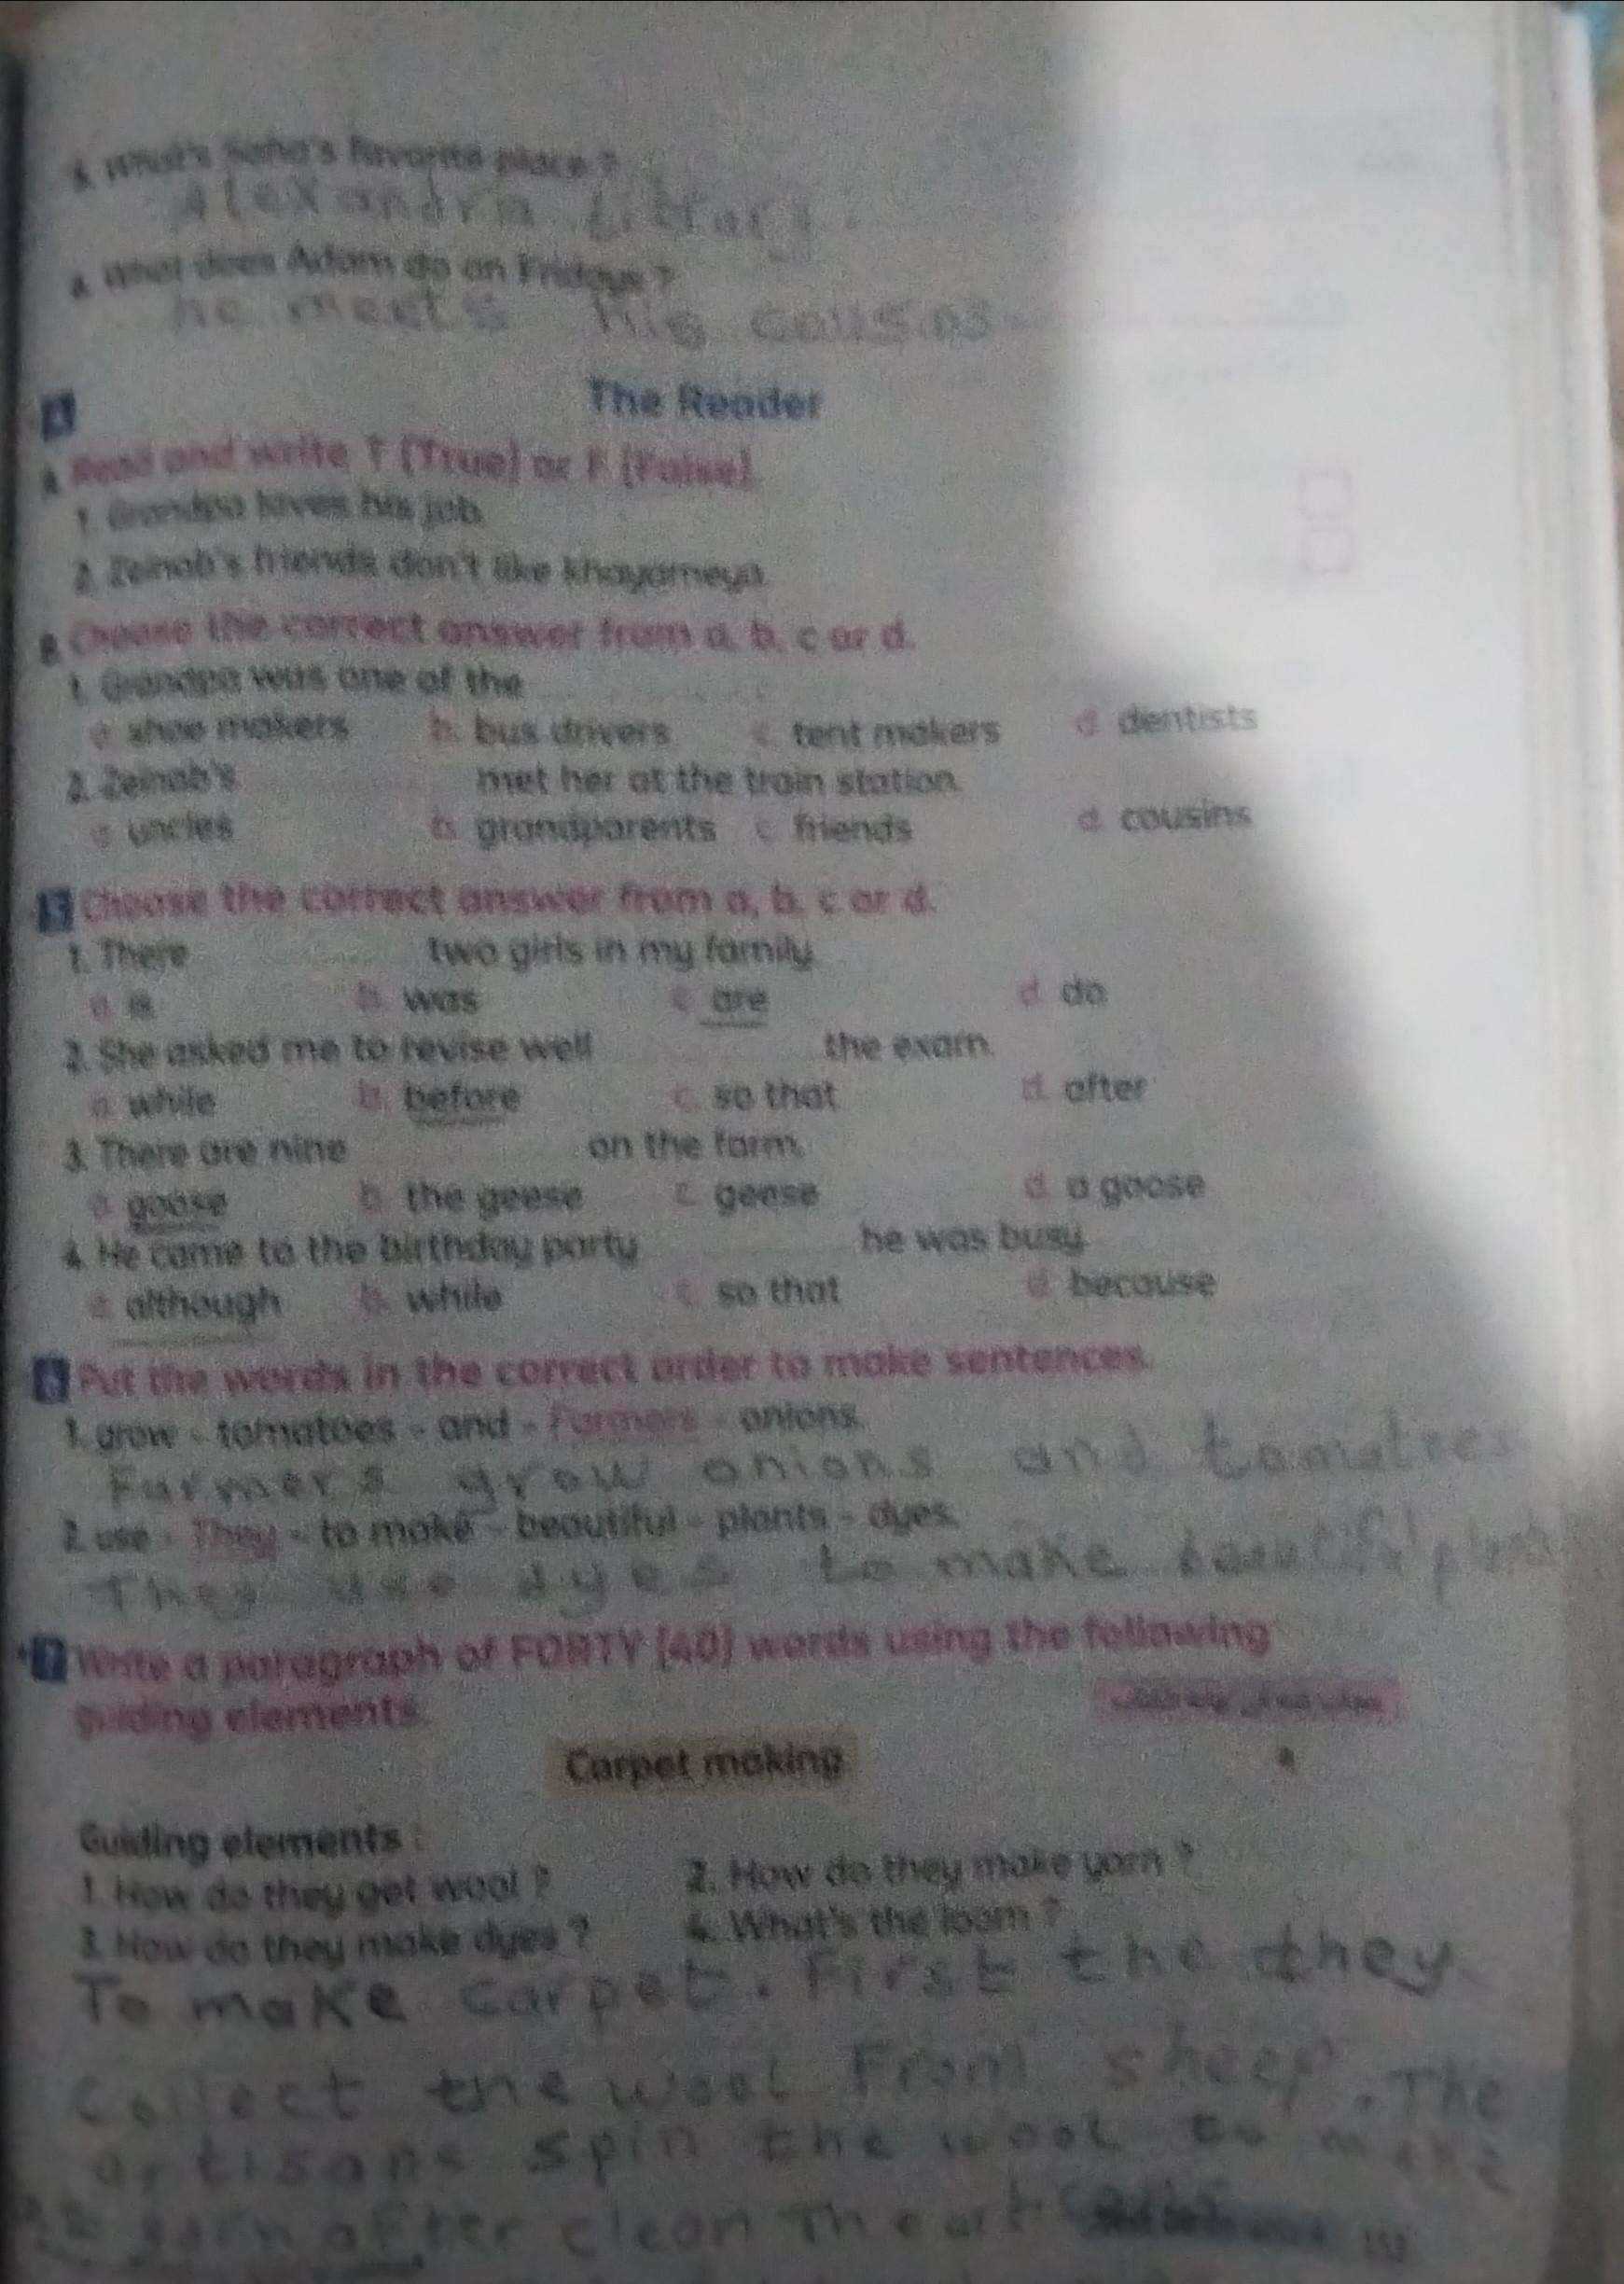 3. What's Soha's favorite place ?
Alexandra
a. What does Adam do on Fridays ?
he meets his cousins
The Reader
A. Read and write T (True) or F (False).
1. Grandpa loves his job.
2. Zeinab's friends don't like khayameya.
B. Choose the correct answer from a, b, c or d.
1. Grandpa was one of the
a. shoe makers b. bus drivers c. tent makers d. dentists
2. Zeinab's met her at the train station.
a. uncles b. grandparents c. friends d. cousins
Choose the correct answer from a, b, c or d.
1. There two girls in my family.
a. is b. was c. are d. do
2. She asked me to revise well the exam.
a. while b. before c. so that d. after
3. There are nine on the farm.
a. goose b. the geese c. geese d. a goose
4. He came to the birthday party he was busy.
a. although b. while c. so that d. because
6 Put the words in the correct order to make sentences.
1. grow - tomatoes - and - Farmers - onions.
Farmers grow onions and
2. use - They - to make - beautiful - plants - dyes.
They use dyes to make
7 Write a paragraph of FORTY (40) words using the following
guiding elements.
Carpet making
Guiding elements :
1. How do they get wool ? 2. How do they make yarn ?
3. How do they make dyes ? 4. What's the loom ?
To make carpet. First the they
Collect the wool From sheep. The
artisans spin the wool to make
yarn after clean The